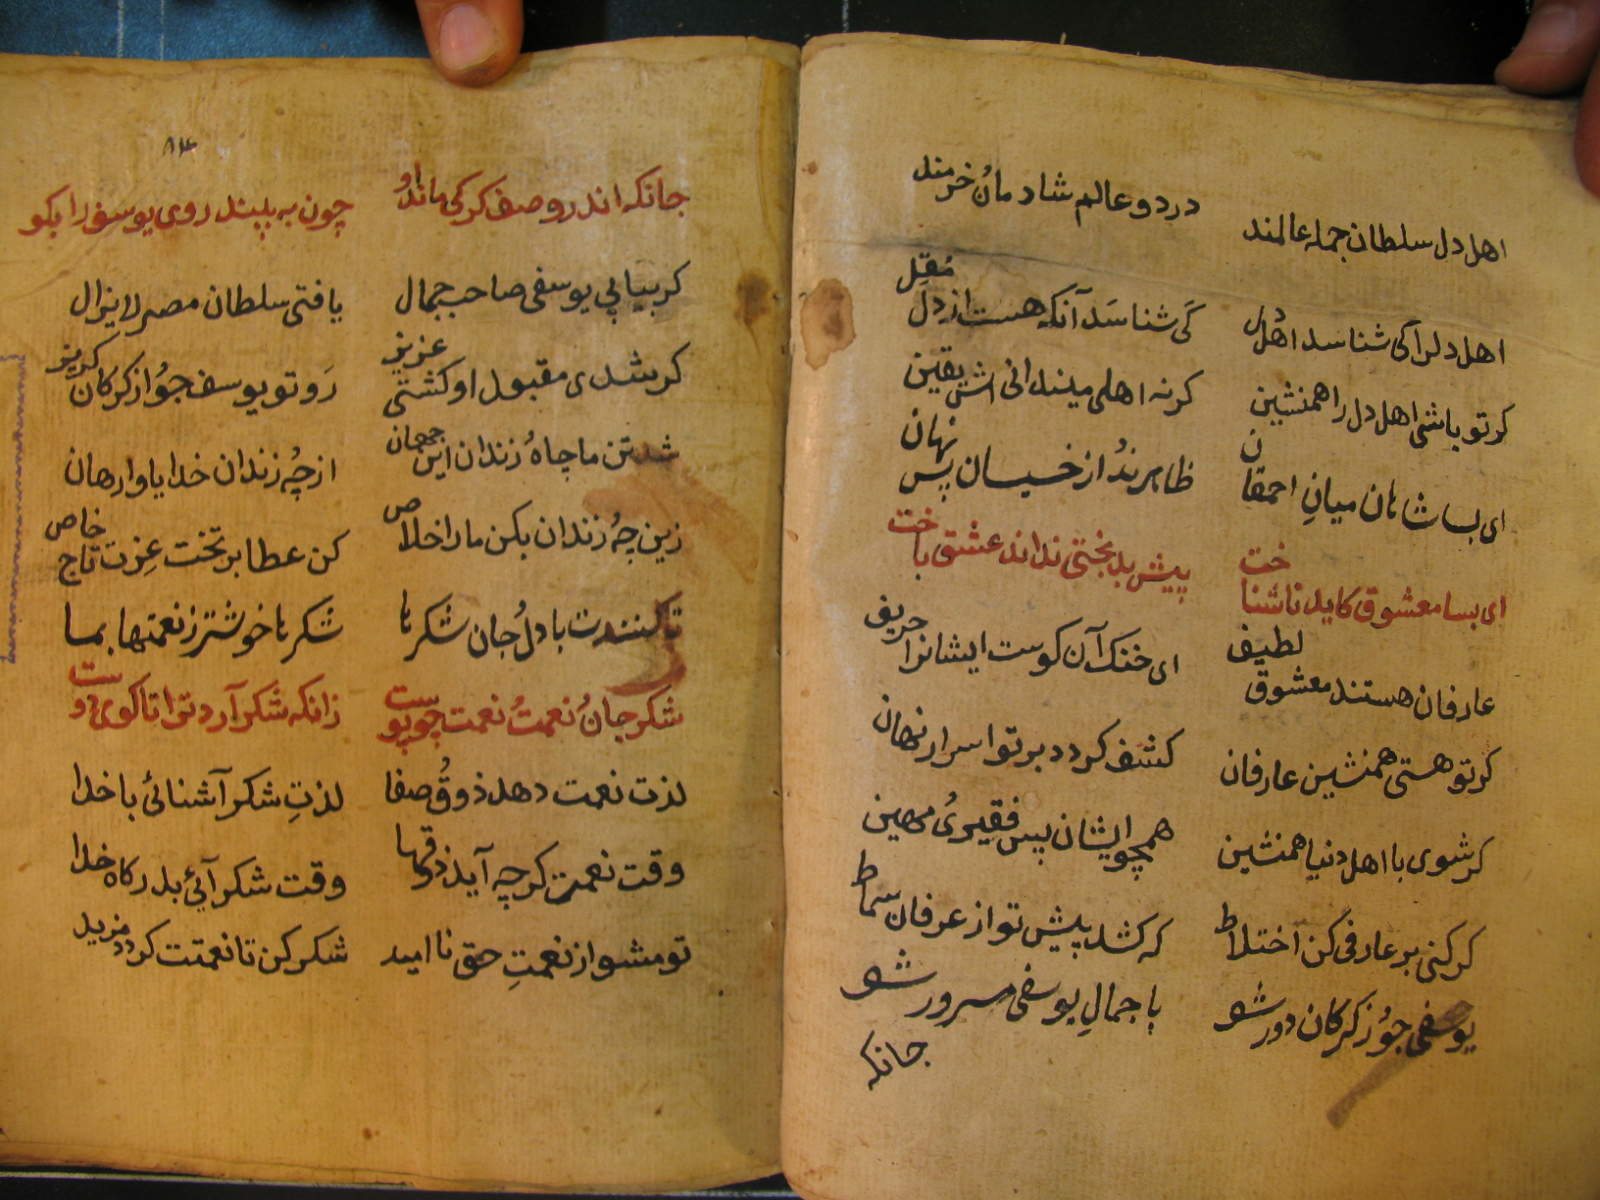 اهل دل سلطان جمله عالمند در دو عالم شادمان خرمند
اهل دلرا کی شناسد اهل دل کی شناسد آنکه هست از دل مقل
کر تو باشی اهل دل را همنشین کر نه اهلی میندانی اش یقین
ای بسا شاهان میان احمقان ظاهرند از خسیان پس نهان
ای بسا معشوق کاید ناشناخت پیش بدبختی نداند عشق باخت
عارفان هستند معشوق لطیف ای خنک آن کوست ایشانرا حریف
کر تو هستی همنشین عارفان کشف کردد بر تو اسرار نهان
کر شوی با اهل دنیا همنشین همچو ایشان پس فقیری مهین
کر کنی بر عارفی کن اختلاط که کشد پیش تو از عرفان سماط
یوسفی جو ز کرکان دور شو با جمال یوسفی مسرور شو
جانکه
۸۴
جانکه اندر وصف کرکی ماند او چون به بیند روی یوسف را بکو
کر بیابی یوسفی صاحب جمال یافتی سلطان مصر لا یزال
کر شدی مقبول او کشتی عزیز رو تو یوسف جو از کرکان کریز
شد تن ما چاه زندان این جهان از چه زندان خدایا وارهان
زین چه زندان بکن ما را خلاص کن عطا بر تخت عزت تاج خاص
تا کنندت با دل جان شکرها شکرها خوشتر ز نعمتها بما
شکر جان نعمت نعمت چو پوست زانکه شکر آرد ترا تا کوی دوست
لذت نعمت دهد ذوق صفا لذت شکر آشنائی با خدا
وقت نعمت کرچه آید ذوقها وقت شکر آئی بدرکاه خدا
تو مشو از نعمت حق نا امید شکر کن تا نعمتت کردد مزید